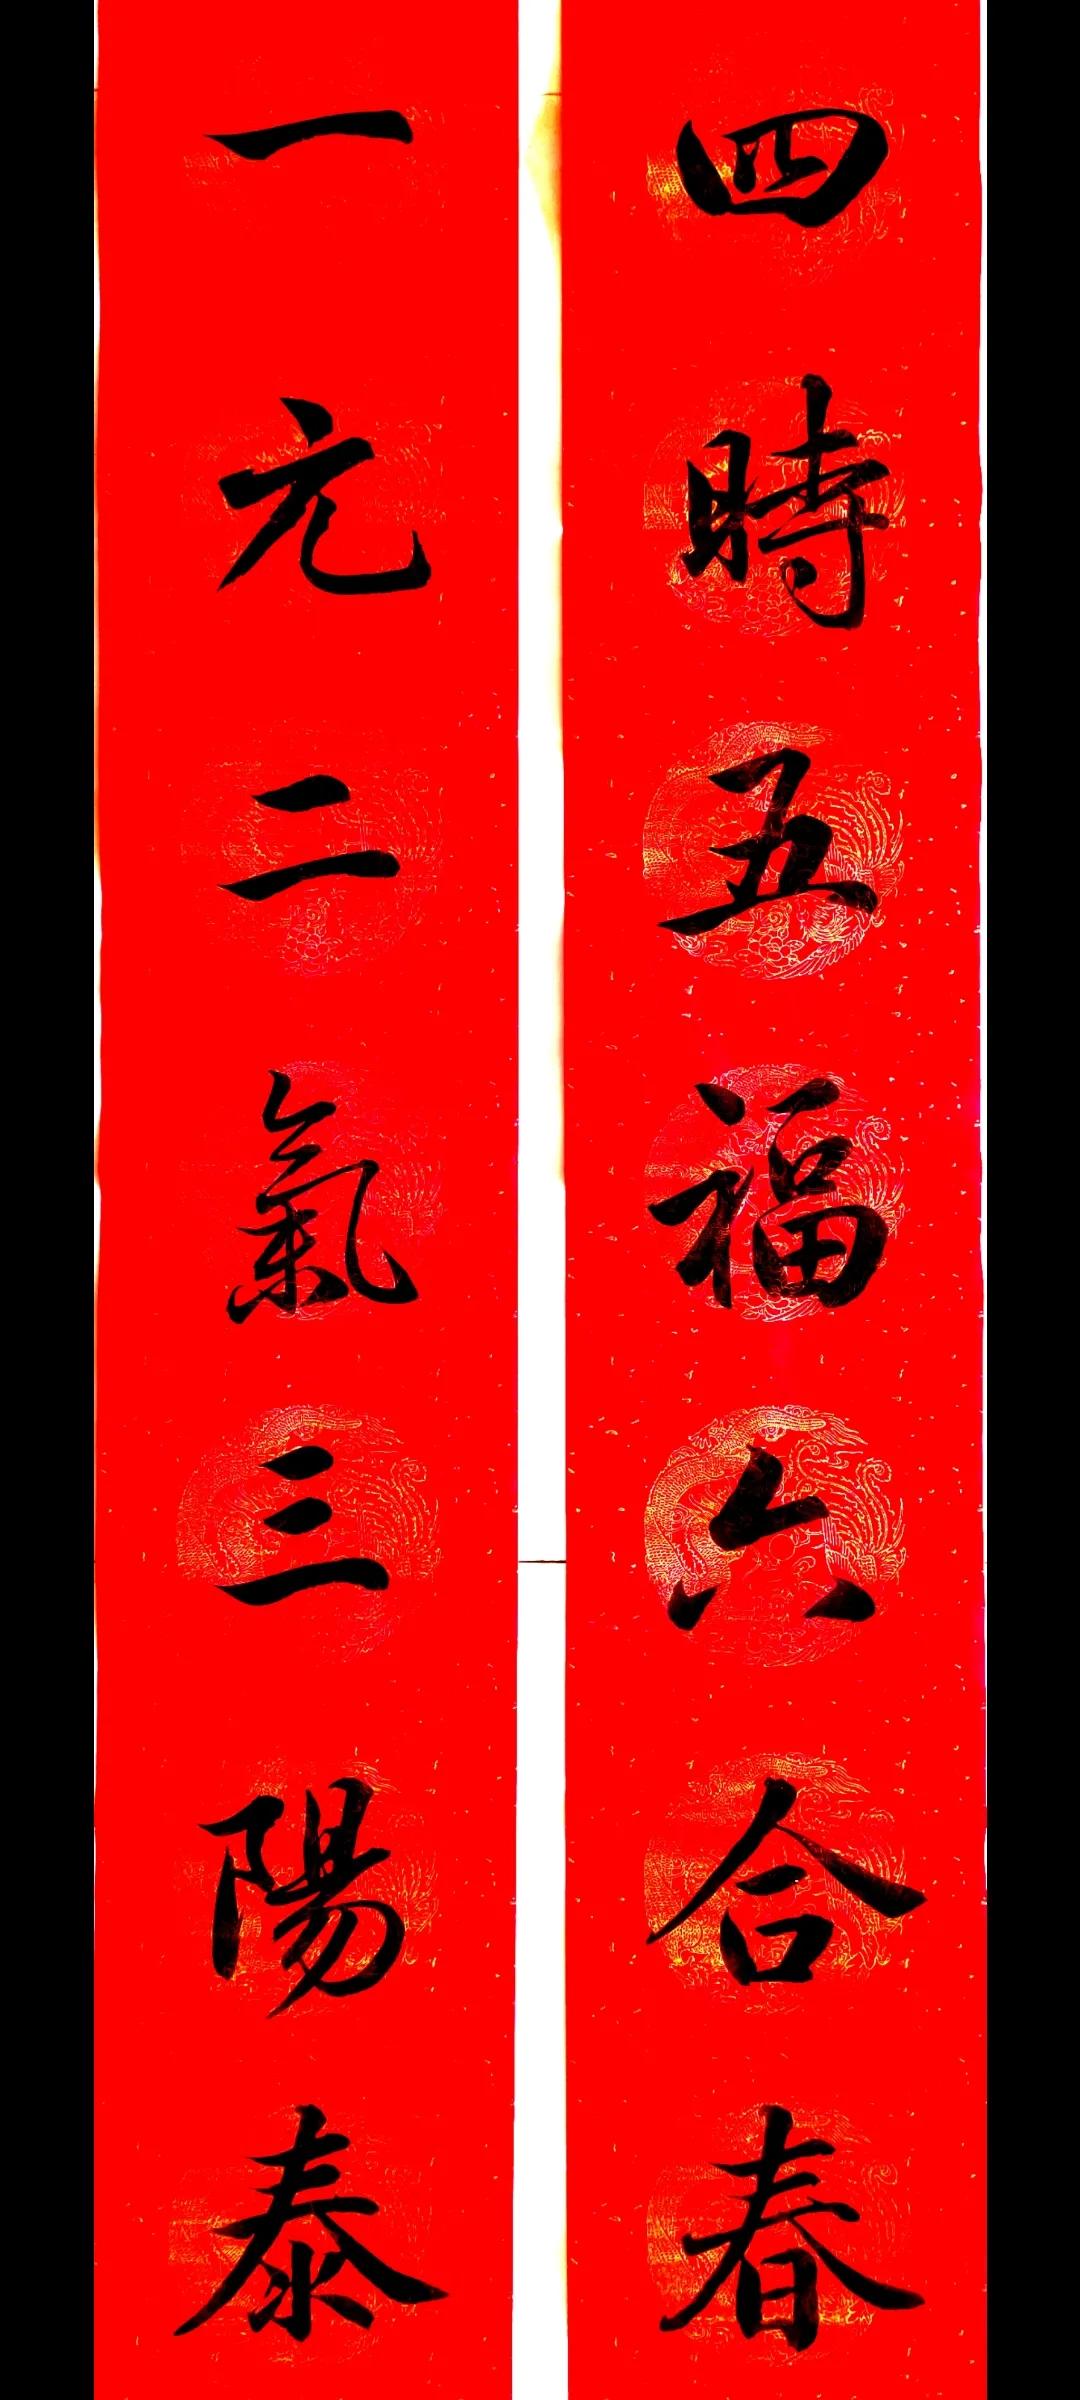 四時五福六合春
一元二氣三陽泰